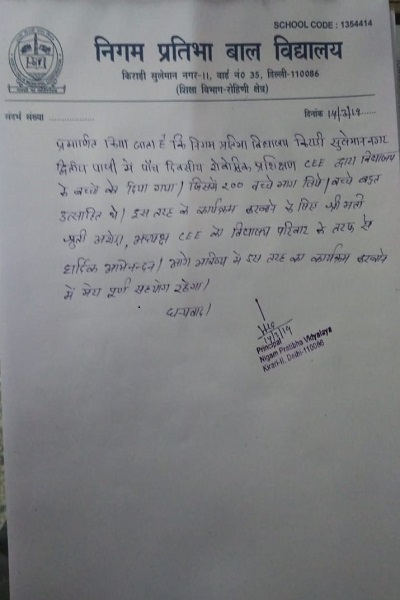 SCHOOL CODE : 1354414
निगम प्रतिभा बाल विद्यालय
किराड़ी सुलेमान नगर-II, वार्ड नं0 35, दिल्ली-110086
(शिक्षा विभाग-रोहिणी क्षेत्र)
संदर्भ संख्या
दिनांक 14/2/19
प्रमाणित किया जाता है कि निगम प्रतिभा विद्यालय किराड़ी सुलेमाननगर
द्वितीय पाली में पाँच दिवसीय शैक्षिक प्रशिक्षण CEE द्वारा विद्यालय
के बच्चों को दिया गया। जिसमें 200 बच्चे भाग लिये। बच्चे बहुत
उत्साहित थे। इस तरह के कार्यक्रम करवाने के लिए श्रीमती
CEE को विद्यालय परिवार के तरफ से
हार्दिक अभिनन्दन। आगे भविष्य में इस तरह का कार्यक्रम करवाने
में मेरा पूर्ण सहयोग रहेगा।
धन्यवाद।
14/2/19
Principal
Nigam Pratibha Vidyalaya
Kirari-II, Delhi-110086